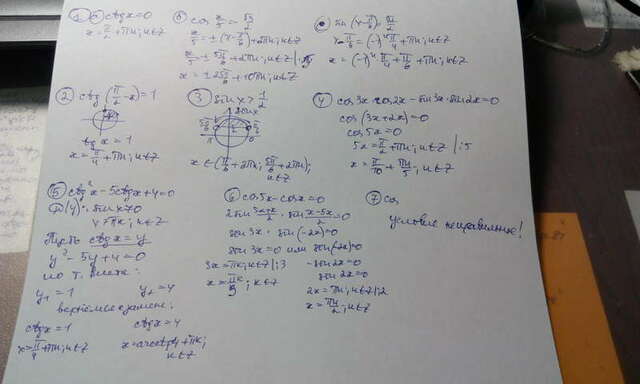 ① а) ctg x = 0
x = π/2 + πn; n∈Z
б) cos x/5 = -√3/2
x/5 = ± (π - π/6) + 2πn; n∈Z
x/5 = ± 5π/6 + 2πn; n∈Z |·5
x = ± 25π/6 + 10πn; n∈Z
sin (x - π/6) = √2/2
x - π/6 = (-1)ⁿ π/4 + πn; n∈Z
x = (-1)ⁿ π/4 + π/6 + πn; n∈Z
② ctg (π/2 - x) = 1
tg x = 1
x = π/4 + πn; n∈Z
③ sin x > 1/2
sin x
5π/6
π/6
π
0
x ∈ (π/6 + 2πn; 5π/6 + 2πn);
n∈Z
④ cos 3x · cos 2x - sin 3x · sin 2x = 0
cos (3x + 2x) = 0
cos 5x = 0
5x = π/2 + πn; n∈Z |:5
x = π/10 + πn/5; n∈Z
⑤ ctg²x - 5ctg x + 4 = 0
D(y): sin x ≠ 0
x ≠ πk; k∈Z
Пусть ctg x = y
y² - 5y + 4 = 0
по т. Виета:
y₁ = 1 y₂ = 4
вернёмся к замене:
ctg x = 1 ctg x = 4
x = π/4 + πn; n∈Z x = arcctg 4 + πk;
k∈Z
⑥ cos 5x - cos x = 0
2 sin (5x+x)/2 · sin (x-5x)/2 = 0
sin 3x · sin (-2x) = 0
sin 3x = 0 или sin (-2x) = 0
3x = πk; k∈Z |:3 -sin 2x = 0
x = πk/3; k∈Z sin 2x = 0
2x = πn; n∈Z |:2
x = πn/2; n∈Z
⑦ cos
условие неправильное!